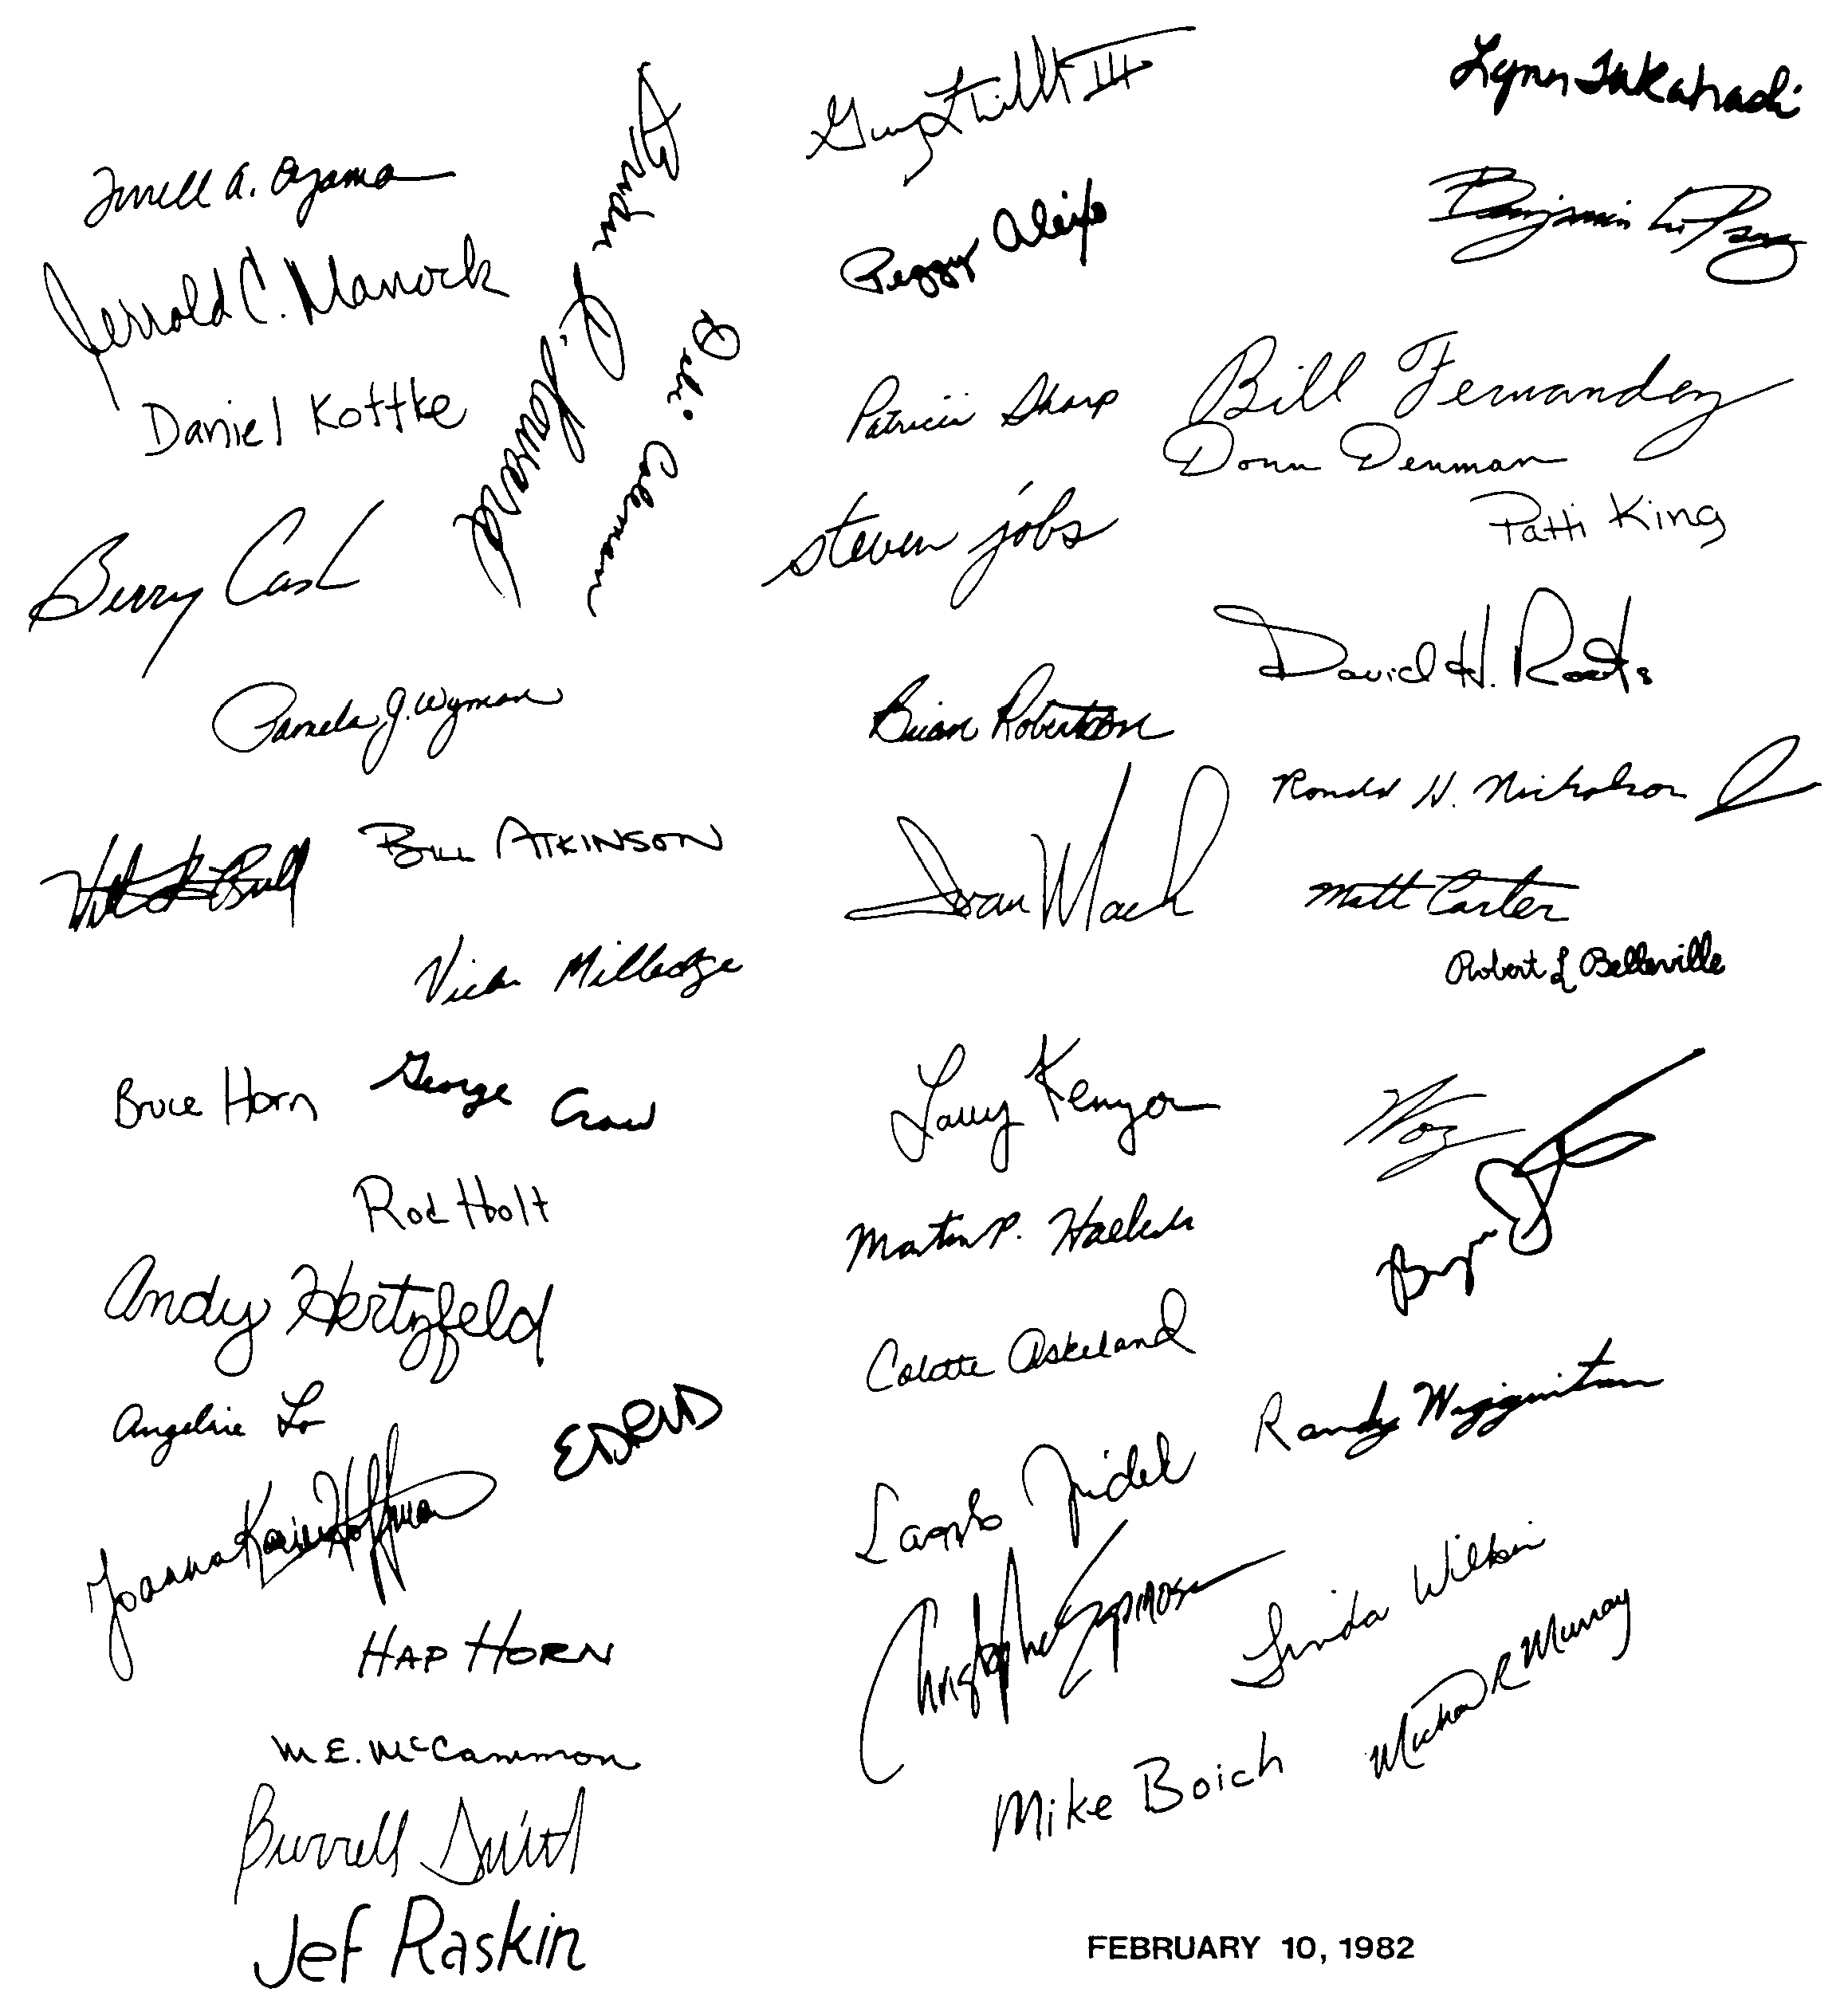 Terrell A. Oyama
Jerrold C. Manock
Daniel Kottke
Berry Cash
Debi Coleman
Pamela J. Wyman
Bill Atkinson
Vicki Milledge
Bruce Horn
George Crow
Rod Holt
Andy Hertzfeld
Angeline Lo
Joanna Karine Hoffman
Hap Horn
M E. McCammon
Burrell Smith
Jef Raskin
III
Peggy Alexio
Patricia Sharp
steven jobs
Brian Robertson
Ivan Mach
Larry Kenyon
Martin P. Haeberli
Colette Askeland
Laszlo Zidek
Christopher Espinosa
Mike Boich
Lynn Takahashi
Benjamin
Bill Fernandez
Donn Denman
Patti King
David H. Roots
Ronald H. Nicholson Jr
Matt Carter
Robert L Belleville
Woz
Bryan
Randy Wigginton
Linda Wilkin
Michael R Murray
FEBRUARY 10, 1982